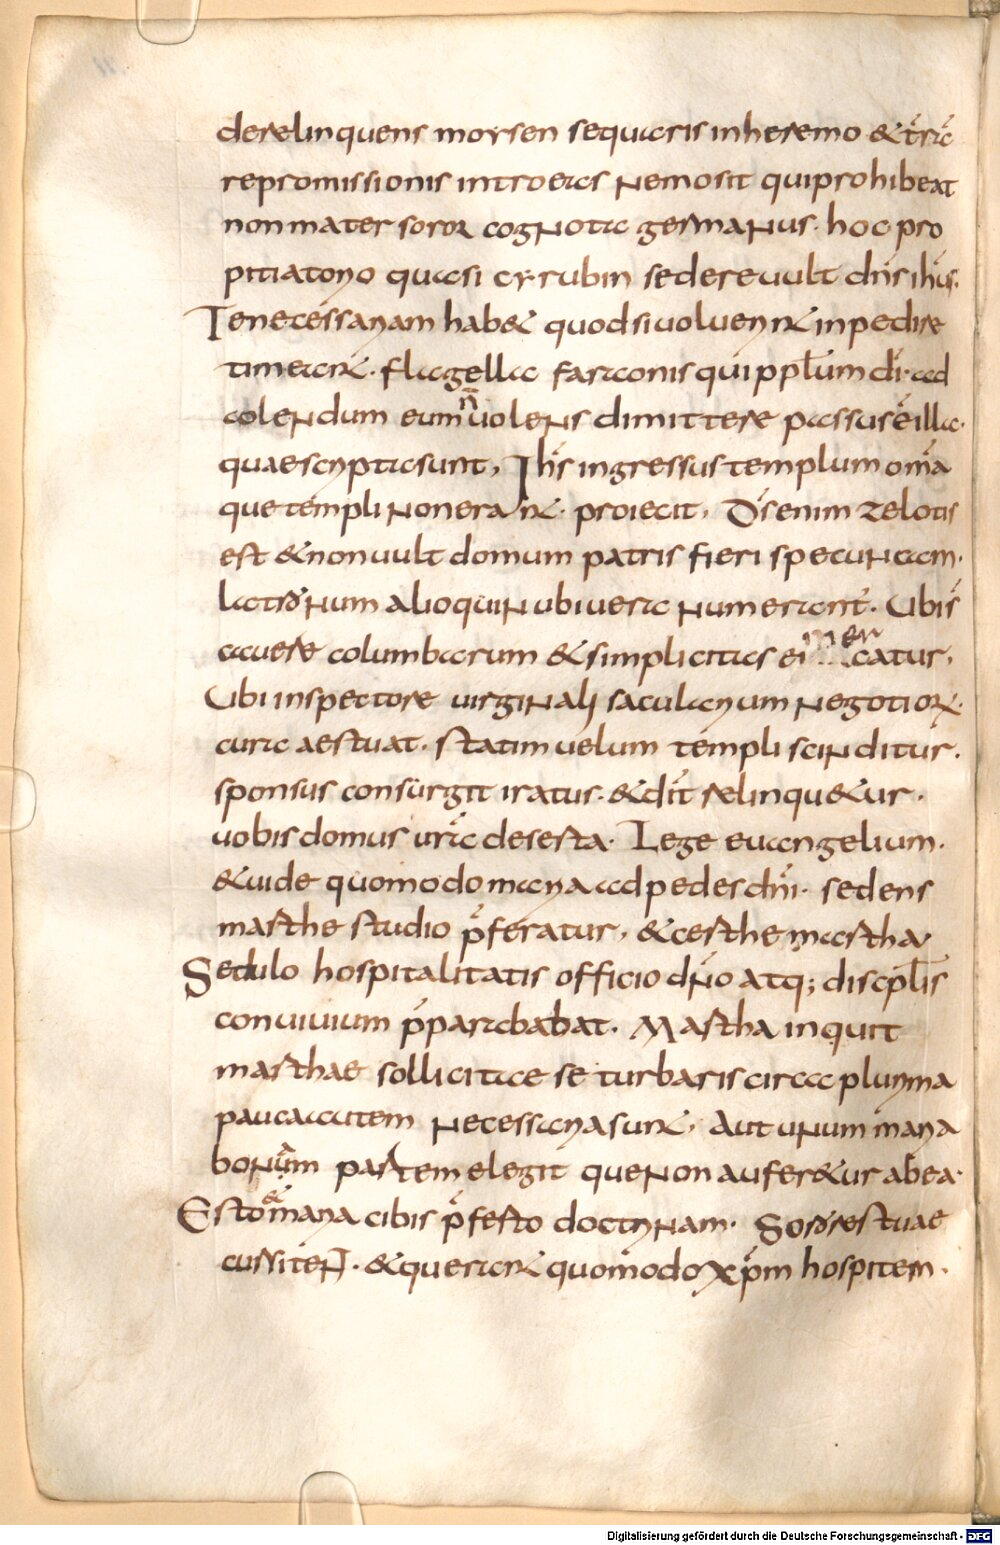 derelinquens moysen sequaris in heremo & t̄rā
repromissionis introeas Nemo sit qui prohibeat
non mater soror cogNota germaNus. hoc pro
pitiatorio quasi cyrrubin sedere uult dn̄s ih̄s.
Te necessariam hab& quod si uoluerint inpedire
timeant. flagella faraonis qui ppl̄um dī. ad
coleNdum eum n̄ uoleNs dimittere passus ē illa.
quae scripta sunt, Ih̄s ingressus templum om̄a
que templi Non erant. proiecit. Ds̄ enim zelotis
est & non uult domum patris fieri speluNcam.
latroNum alioquiN ubi uera Numerant̄. Ubi s̄
cauere columbarum & simplicitas ei mercatur,
Ubi in spectore uirgiNali saculariyum Negotior̄.
cura aestuat. statim uelum templi sciNditur.
sponsus consurgit iratus. & dīt relinqu&ur.
uobis domus ur̄a deserta. Lege euangelium.
& uide quomodo maria ad pedes dn̄i. sedens
marthe studio p̄feratur, & certhe martha
Sedulo hospitalitatis officio dn̄o atq; discipl̄is
conuiuium p̄parabat. Martha inquit
marthae sollicitae se turbaris circa plurima
pauca autem Necessaria sunt. Aut uNum maria
boNam partem elegit que Non aufer&ur ab ea.
Esto & maria cibis p̄festo doctriNam. Sorores tuae
cursiteN̄. & querant quomodo xp̄m hospitem.